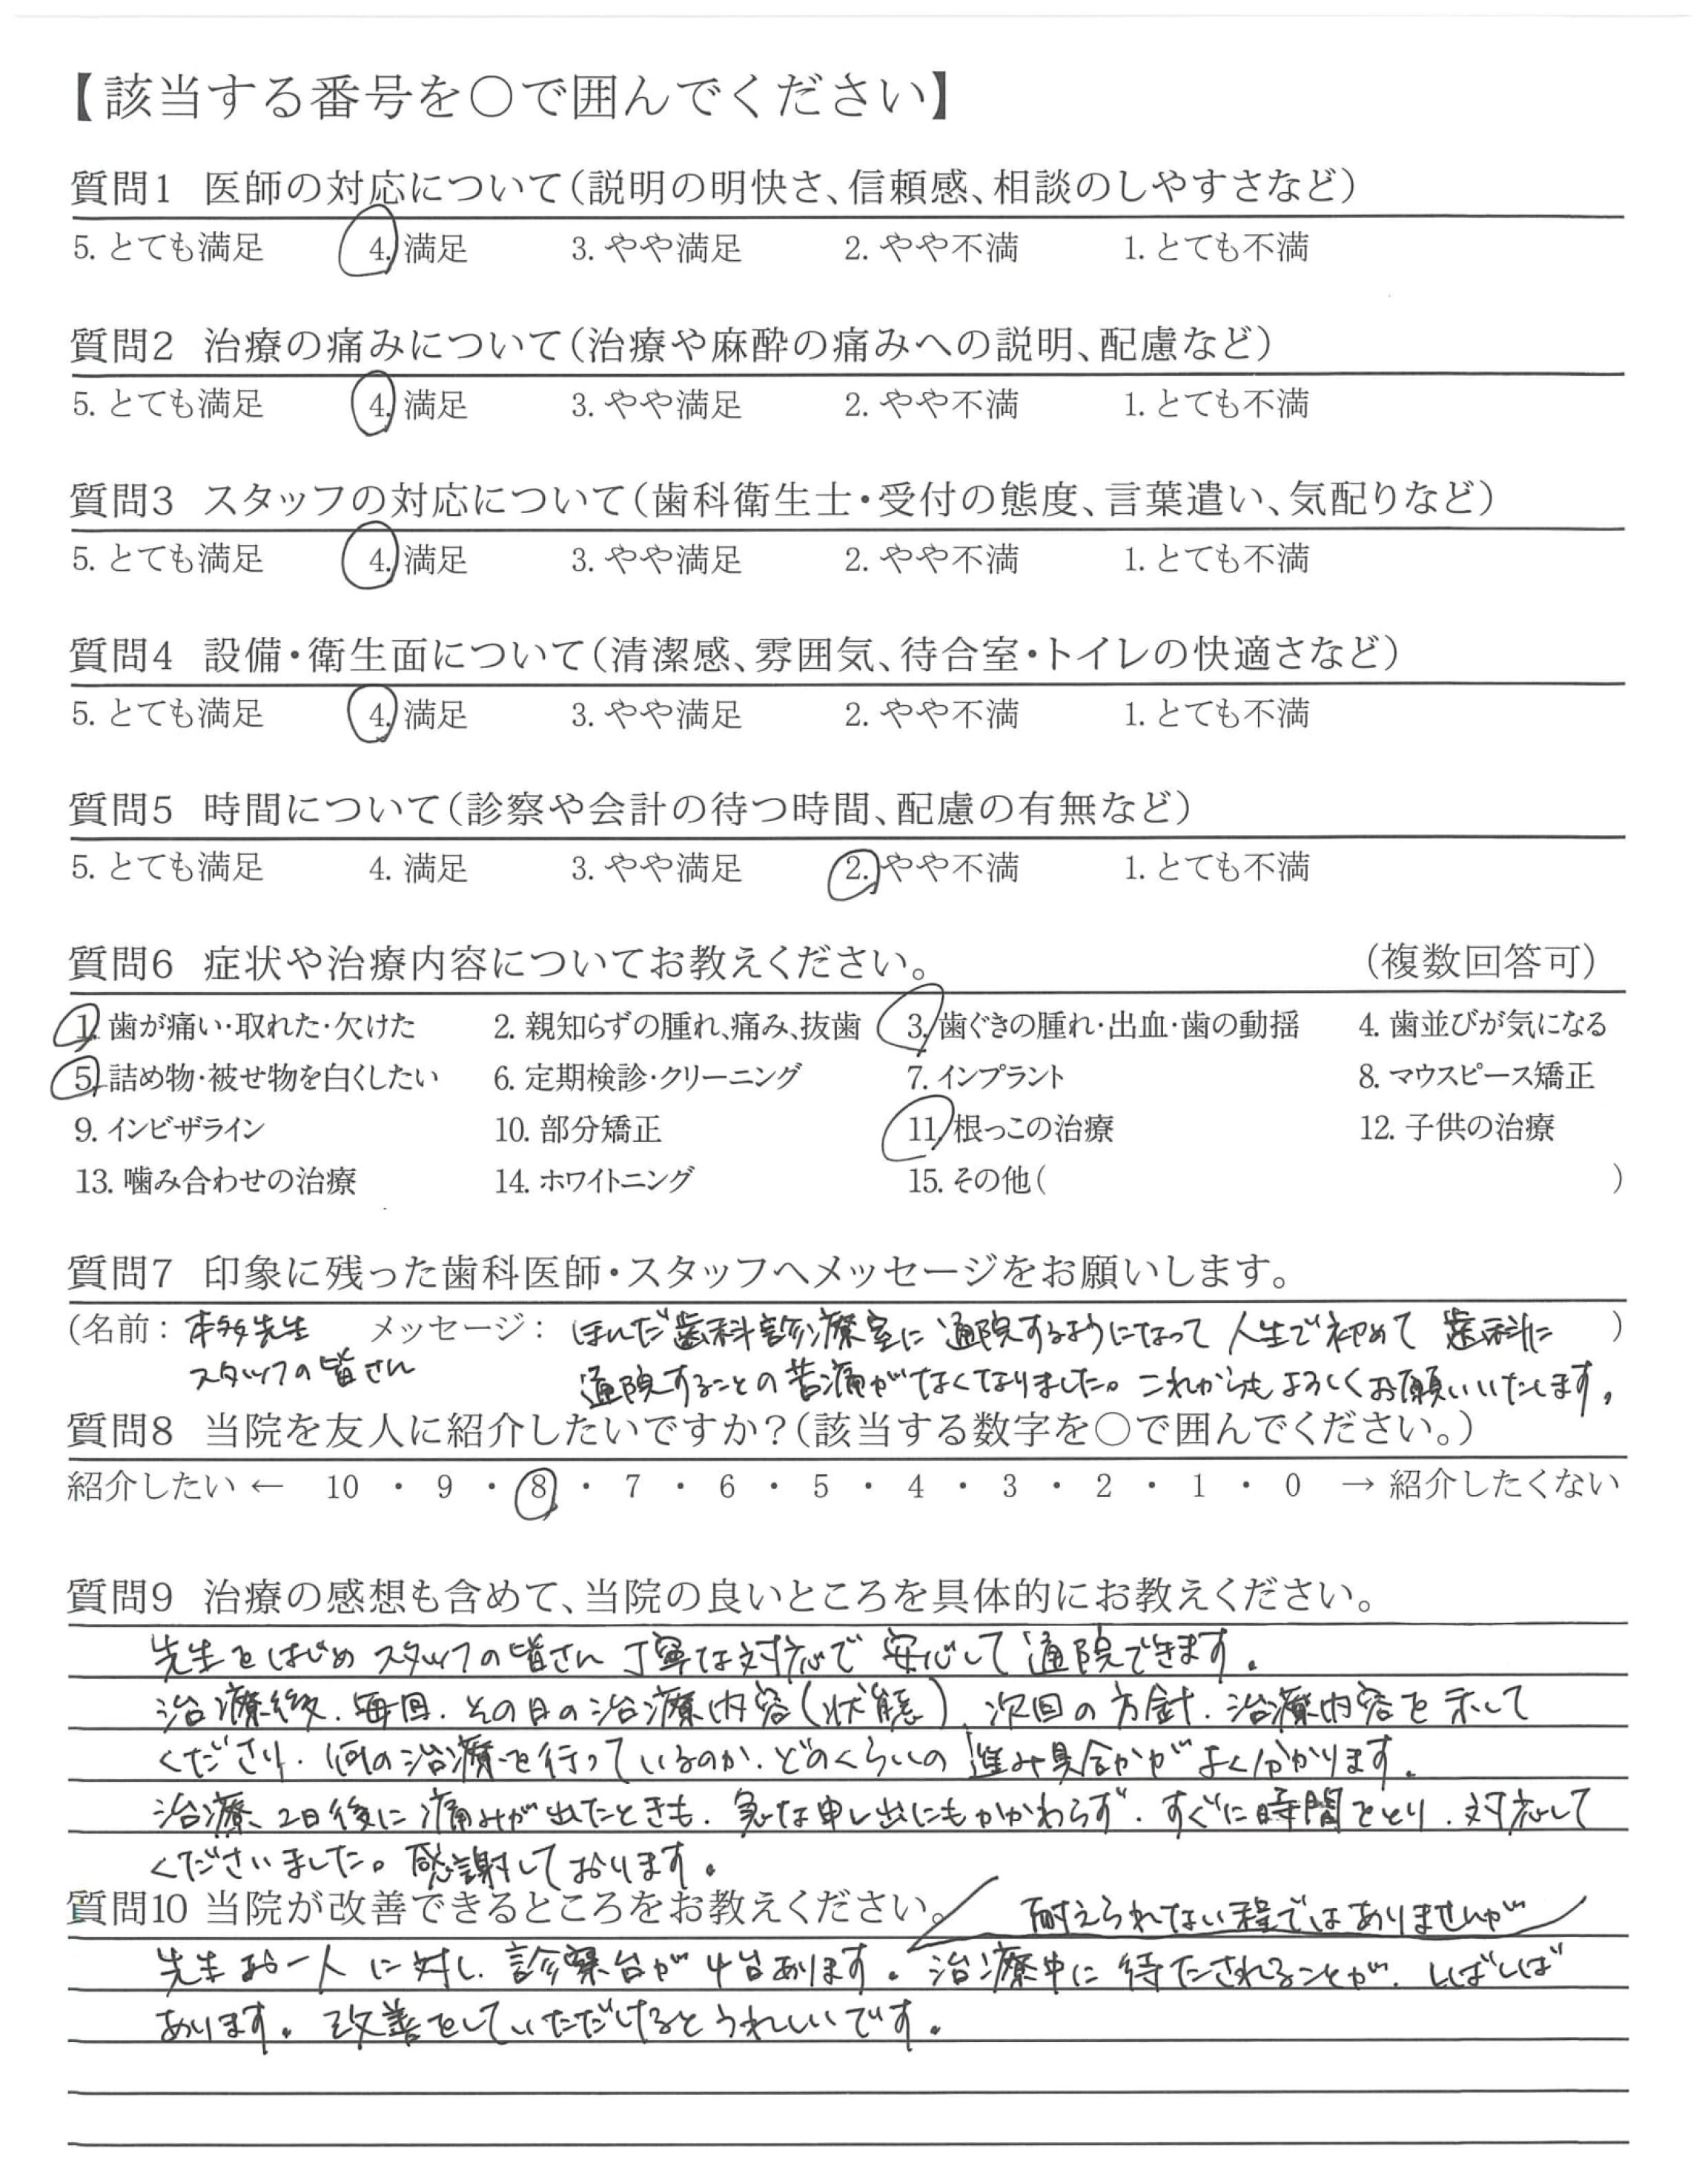 【該当する番号を〇で囲んでください】
質問1 医師の対応について(説明の明快さ、信頼感、相談のしやすさなど)
5. とても満足 4. 満足 3. やや満足 2. やや不満 1. とても不満
質問2 治療の痛みについて(治療や麻酔の痛みへの説明、配慮など)
5. とても満足 4. 満足 3. やや満足 2. やや不満 1. とても不満
質問3 スタッフの対応について(歯科衛生士・受付の態度、言葉遣い、気配りなど)
5. とても満足 4. 満足 3. やや満足 2. やや不満 1. とても不満
質問4 設備・衛生面について(清潔感、雰囲気、待合室・トイレの快適さなど)
5. とても満足 4. 満足 3. やや満足 2. やや不満 1. とても不満
質問5 時間について(診察や会計の待つ時間、配慮の有無など)
5. とても満足 4. 満足 3. やや満足 2. やや不満 1. とても不満
質問6 症状や治療内容についてお教えください。 (複数回答可)
1. 歯が痛い・取れた・欠けた 2. 親知らずの腫れ、痛み、抜歯 3. 歯ぐきの腫れ・出血・歯の動揺 4. 歯並びが気になる
5. 詰め物・被せ物を白くしたい 6. 定期検診・クリーニング 7. インプラント 8. マウスピース矯正
9. インビザライン 10. 部分矯正 11. 根っこの治療 12. 子供の治療
13. 噛み合わせの治療 14. ホワイトニング 15. その他( )
質問7 印象に残った歯科医師・スタッフへメッセージをお願いします。
(名前: 本多先生 メッセージ: ほんだ歯科診療室に通院するようになって人生で初めて歯科に )
スタッフの皆さん 通院することの苦痛がなくなりました。これからもよろしくお願いいたします。
質問8 当院を友人に紹介したいですか?(該当する数字を〇で囲んでください。)
紹介したい ← 10 ・ 9 ・ 8 ・ 7 ・ 6 ・ 5 ・ 4 ・ 3 ・ 2 ・ 1 ・ 0 → 紹介したくない
質問9 治療の感想も含めて、当院の良いところを具体的にお教えください。
先生をはじめスタッフの皆さん丁寧な対応で安心して通院できます。
治療後、毎回、その日の治療内容(状態)、次回の方針、治療内容を示して
くださり、何の治療を行っているのか、どのくらいの進み具合かがよく分かります。
治療、2日後に痛みが出たときも、急な申し出にもかかわらず、すぐに時間をとり、対応して
くださいました。感謝しております。
質問10 当院が改善できるところをお教えください。 耐えられない程ではありませんが
先生お一人に対し、診察台が4台あります。治療中に待たされることが、しばしば
あります。改善をしていただけるとうれしいです。